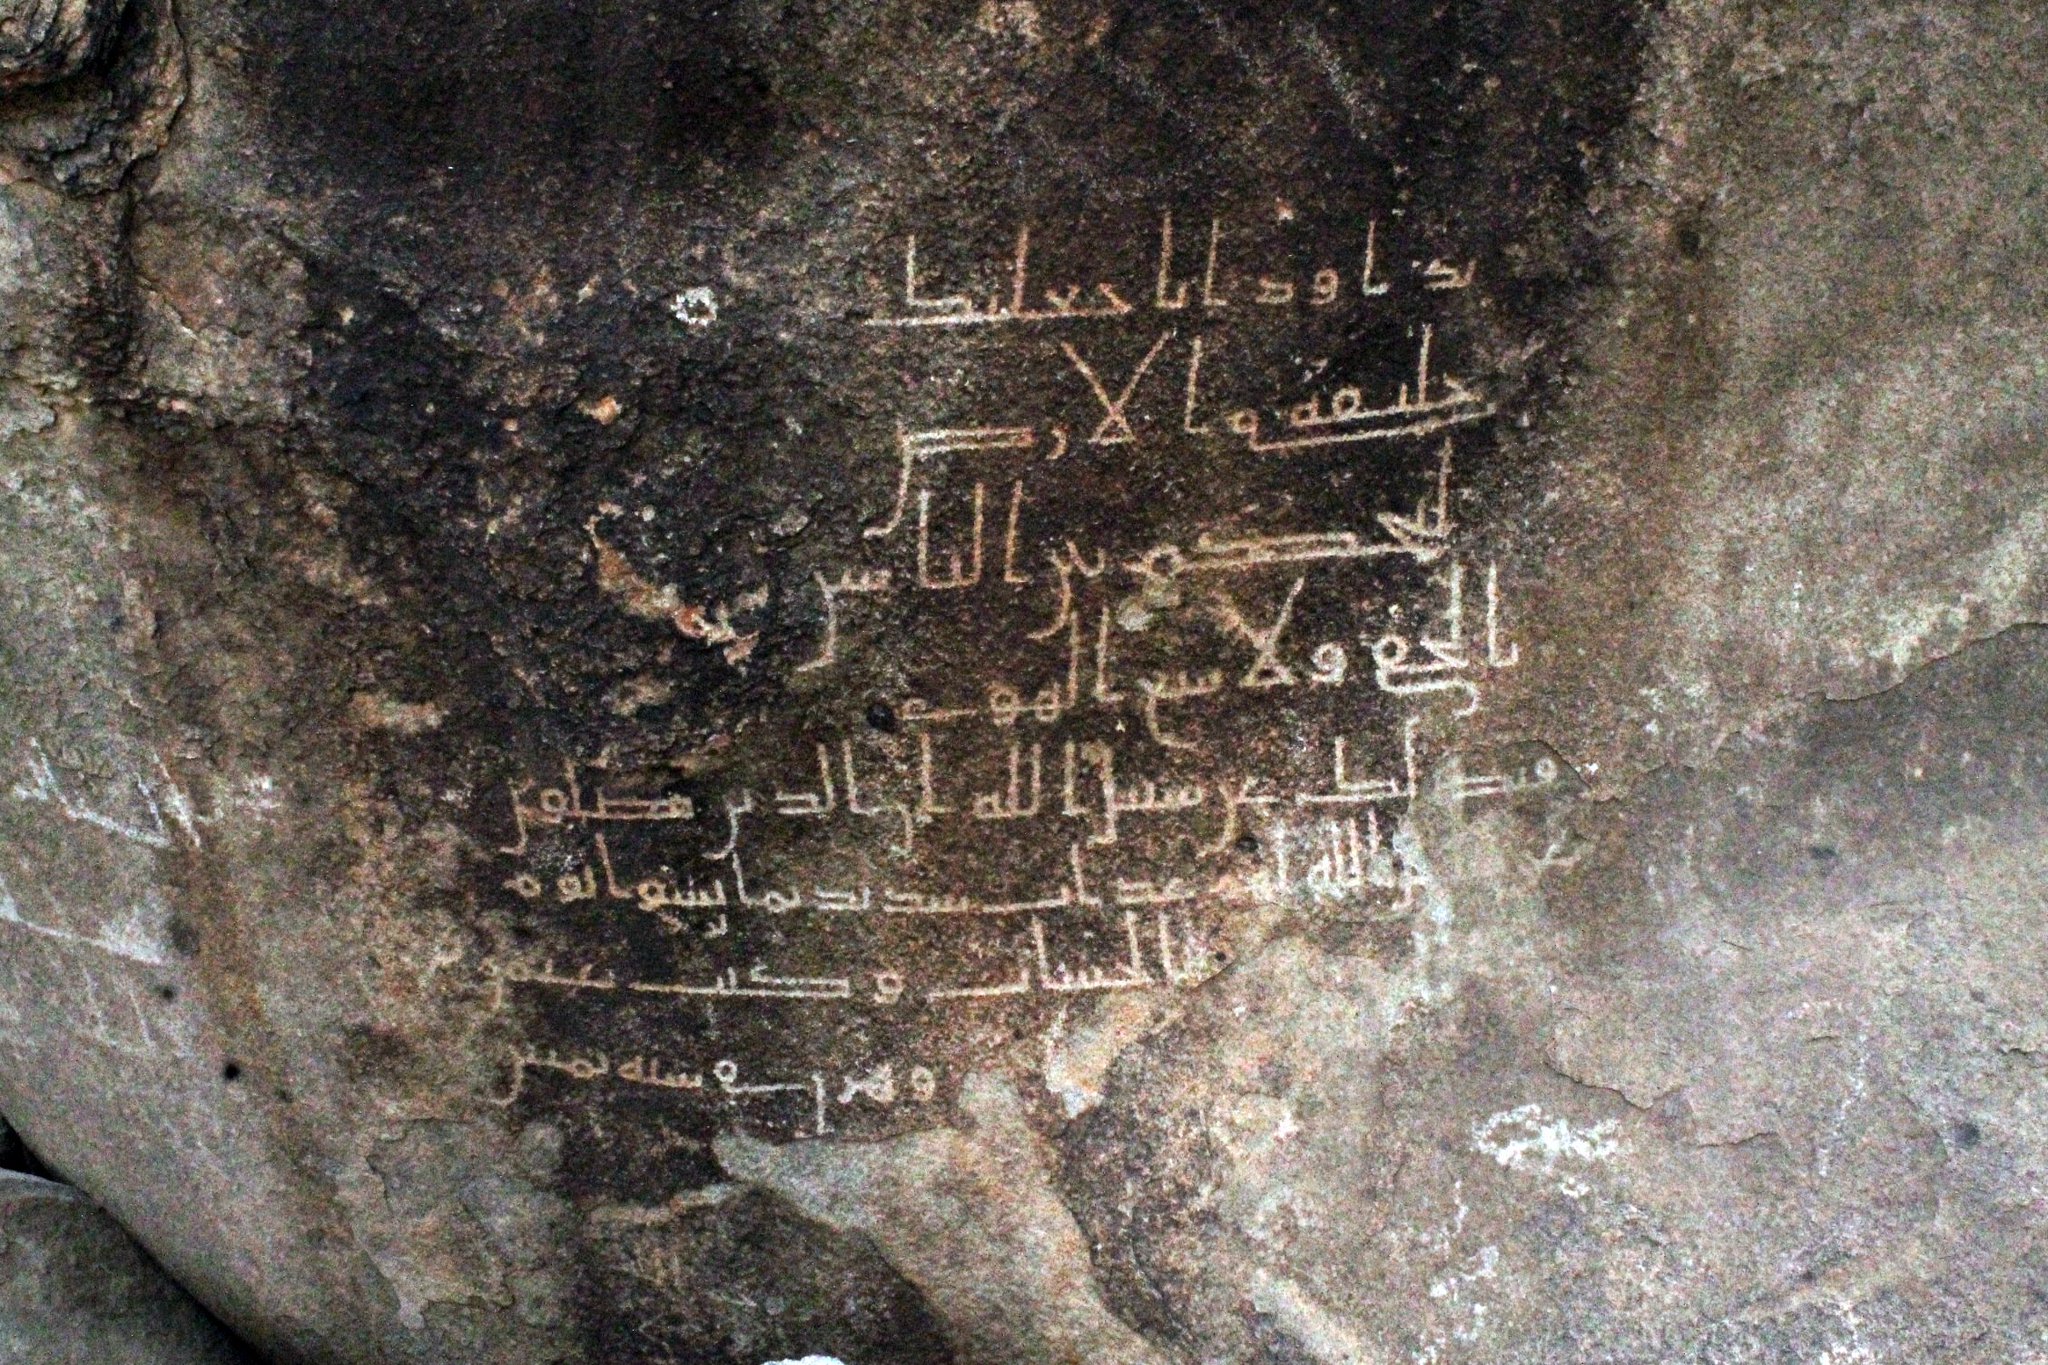 يداود انا جعلنك
خليفه في الارض
لتحكم بين الناس
بالحق ولا تتبع الهوى
فيضلك عن سبيل الله ان الذين يضلون
الله لهم عذاب شديد بما نسوا يوم
الحساب وكتب عثمن
سنه ثمنين